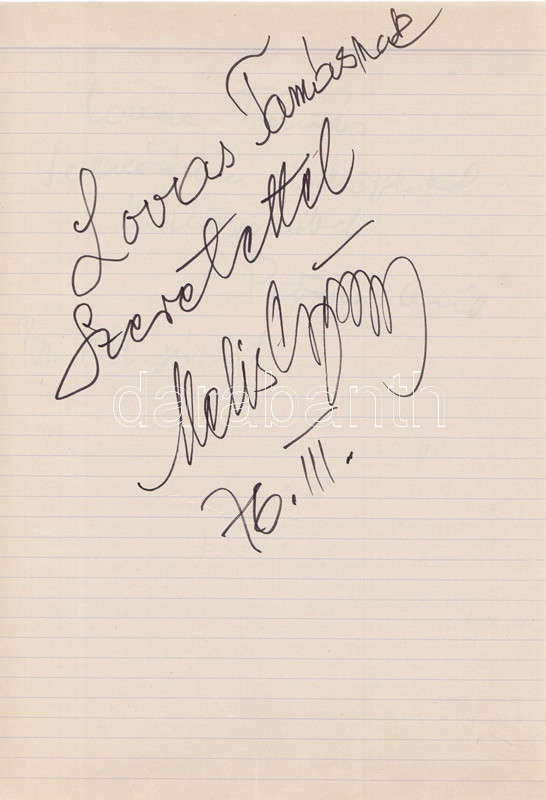 Lovas Tamásnak
Szeretettel
Melis György
76. III.
darabanth